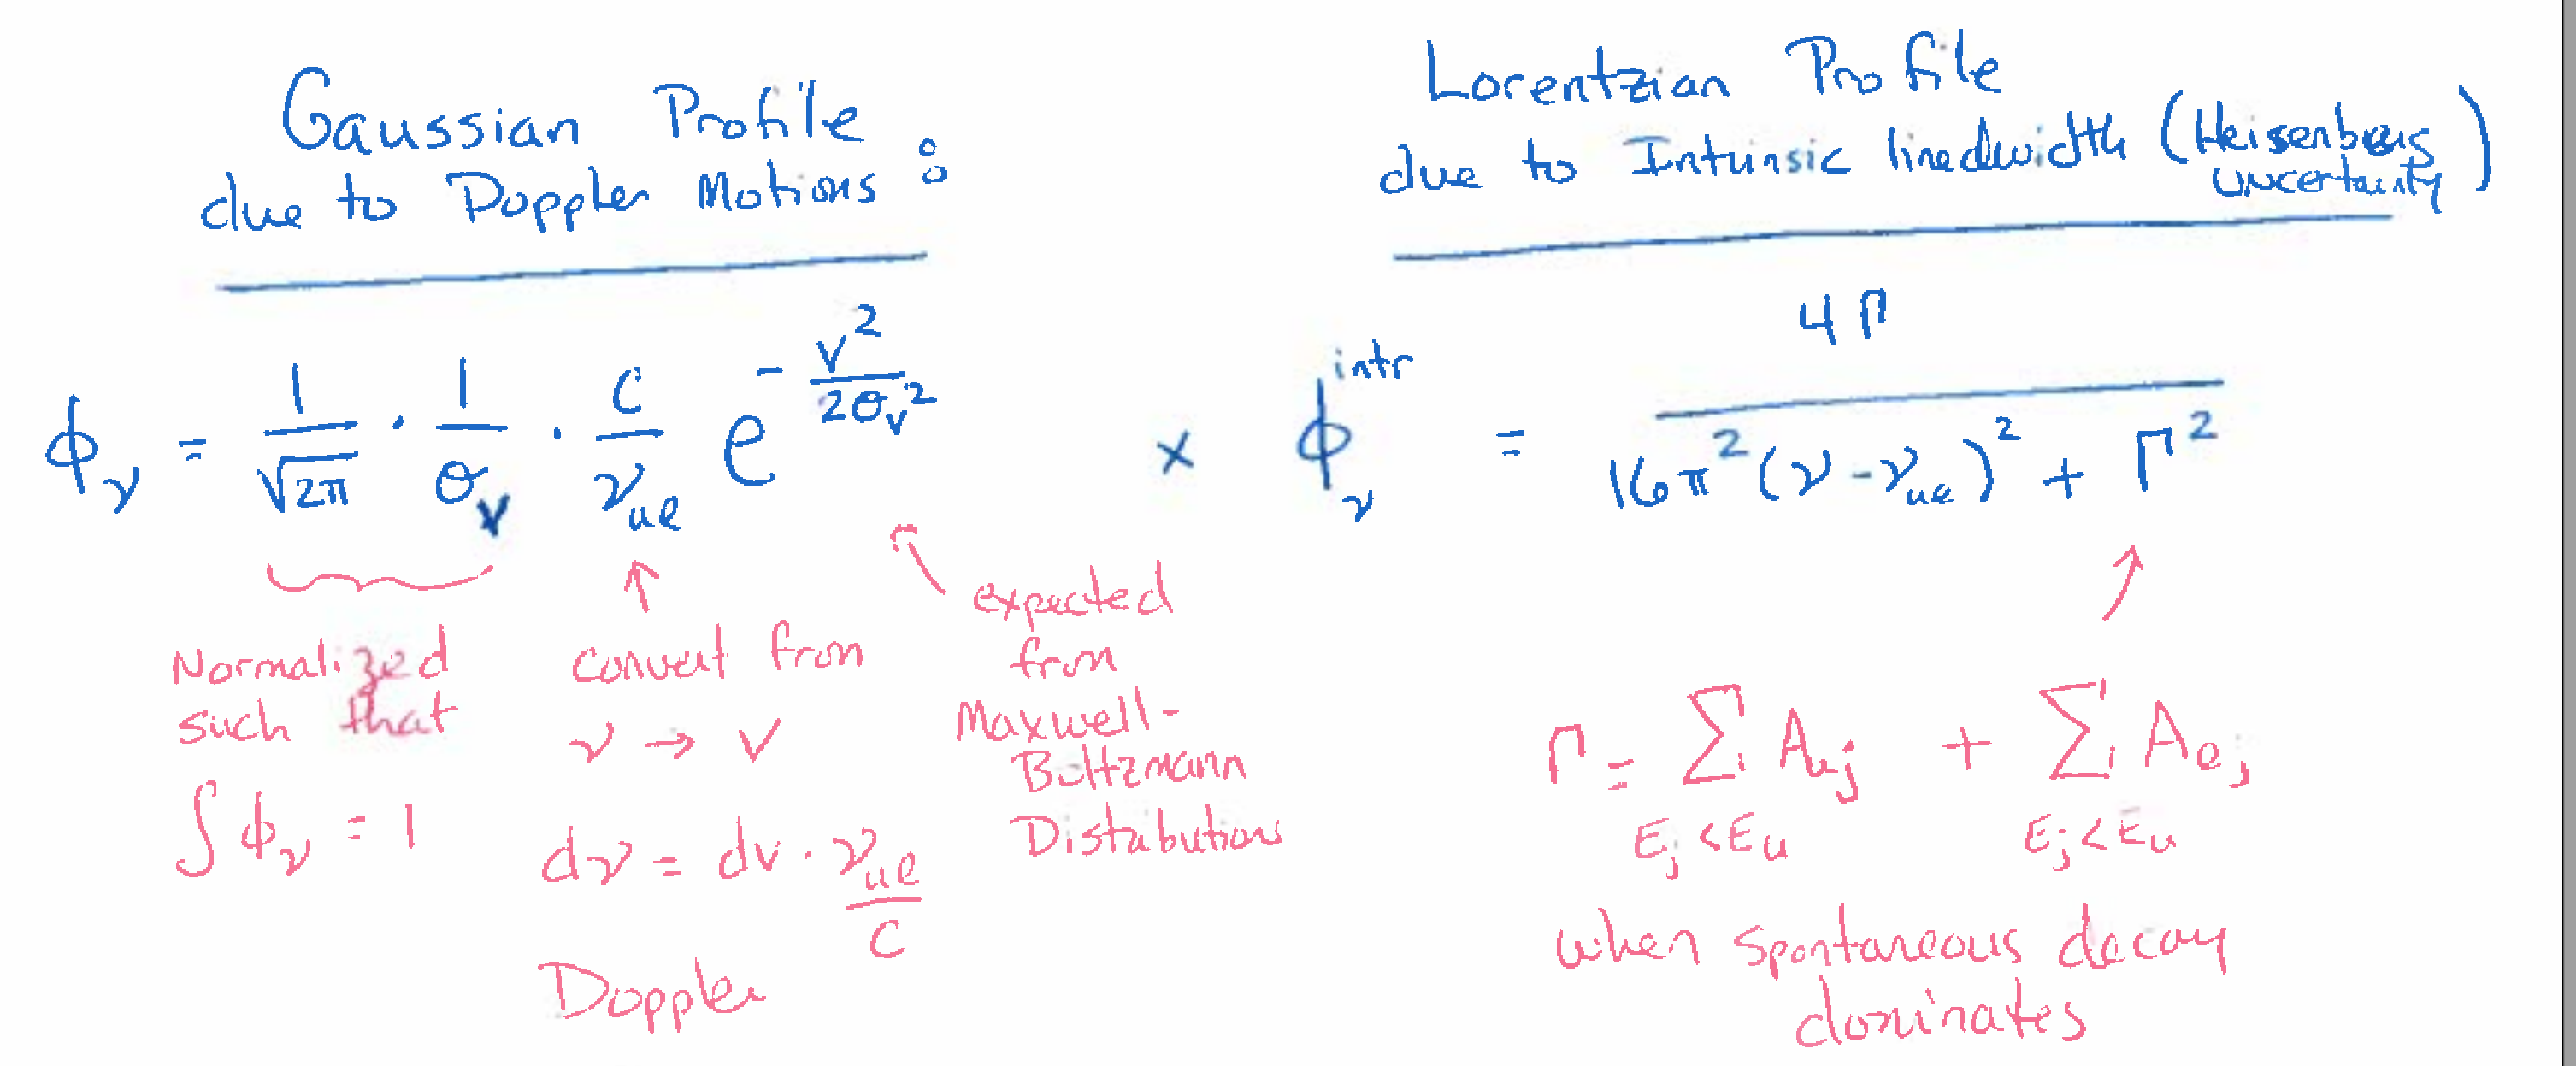 Gaussian Profile
due to Doppler Motions :
ϕ_ν = 1/√2π · 1/σ_v · c/ν_ul e^(- v²/2σ_v²)
Normalized
such that
∫ ϕ_ν = 1
convert from
ν → v
dν = dv · ν_ul/c
Doppler
expected
from
Maxwell-
Boltzmann
Distributions
×
Lorentzian Profile
due to Intrinsic linedwidth (Heisenberg
uncertainty)
ϕ_ν^intr = 4Γ / 16π²(ν - ν_ul)² + Γ²
Γ = Σ A_uj + Σ A_lj
E_j < E_u E_j < E_u
when spontaneous decay
dominates